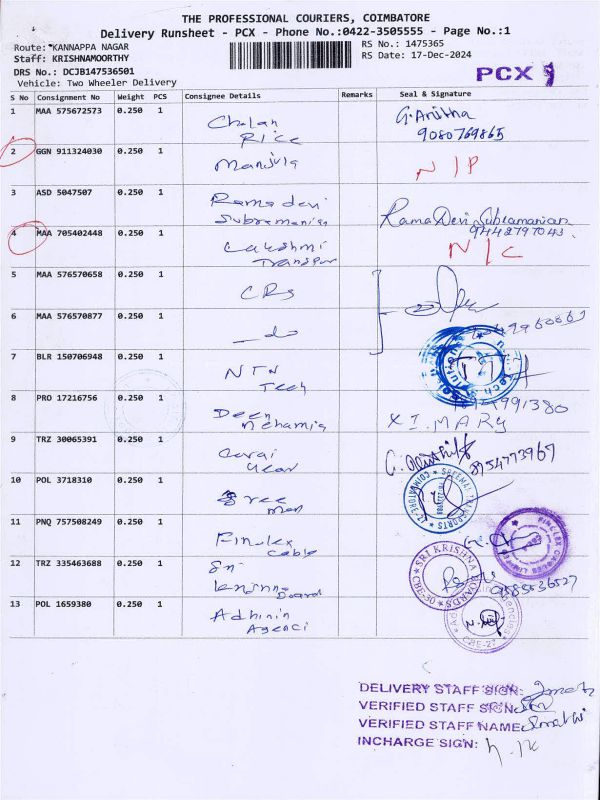 THE PROFESSIONAL COURIERS, COIMBATORE
Delivery Runsheet - PCX - Phone No.:0422-3505555 - Page No.:1
Route: *KANNAPPA NAGAR
RS No.: 1475365
Staff: KRISHNAMOORTHY
RS Date: 17-Dec-2024
DRS No.: DCJB147536501
Vehicle: Two Wheeler Delivery
PCX
S No Consignment No Weight PCS Consignee Details Remarks Seal & Signature
1 MAA 575672573 0.250 1 Rice G. Anitha
9080769865
2 GGN 911324030 0.250 1 Manjula N/P
3 ASD 5047507 0.250 1 Ramadevi Subramanian Rama Devi Subramanian
9442797043
4 MAA 705402448 0.250 1 Lakshmi N/C
5 MAA 576570658 0.250 1 CRS
6 MAA 576570877 0.250 1 do
7 BLR 150706948 0.250 1 NTN Tech
8 PRO 17216756 0.250 1 Deen Nehamia X I. MARY
9 TRZ 30065391 0.250 1 8754773967
10 POL 3718310 0.250 1 Sree SREEMAN TRANSPORTS
11 PNQ 757508249 0.250 1 Finolex Cable FINOLEX CABLES LIMITED
12 TRZ 335463688 0.250 1 Sri Krishna Board SRI KRISHNA BOARDS CBE-30
9585536527
13 POL 1659380 0.250 1 Agenci CBE-2
DELIVERY STAFF SIGN:
VERIFIED STAFF SIGN:
VERIFIED STAFF NAME:
INCHARGE SIGN: